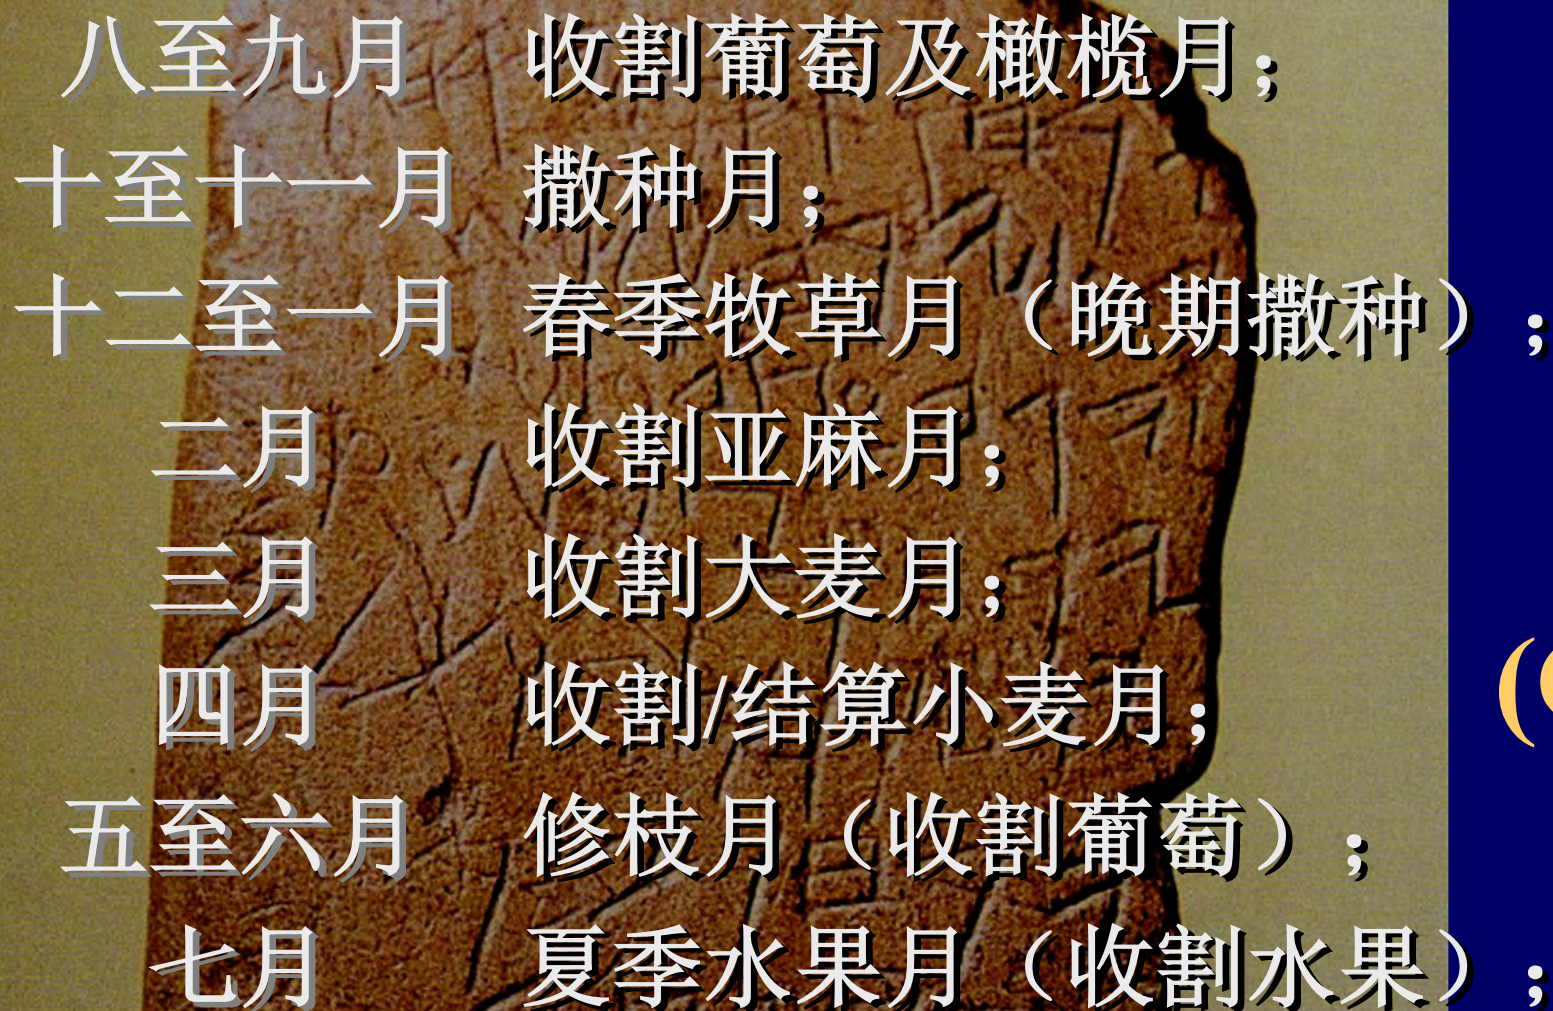 八至九月 收割葡萄及橄榄月；
十至十一月 撒种月；
十二至一月 春季牧草月（晚期撒种）；
二月 收割亚麻月；
三月 收割大麦月；
四月 收割/结算小麦月；
五至六月 修枝月（收割葡萄）；
七月 夏季水果月（收割水果）；